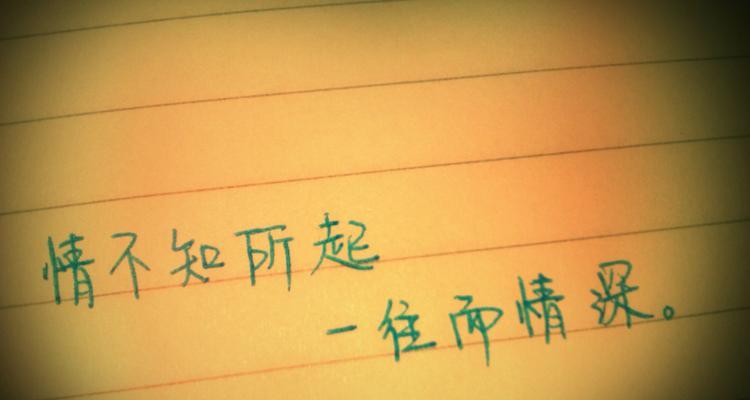 情不知所起
一往而情深。